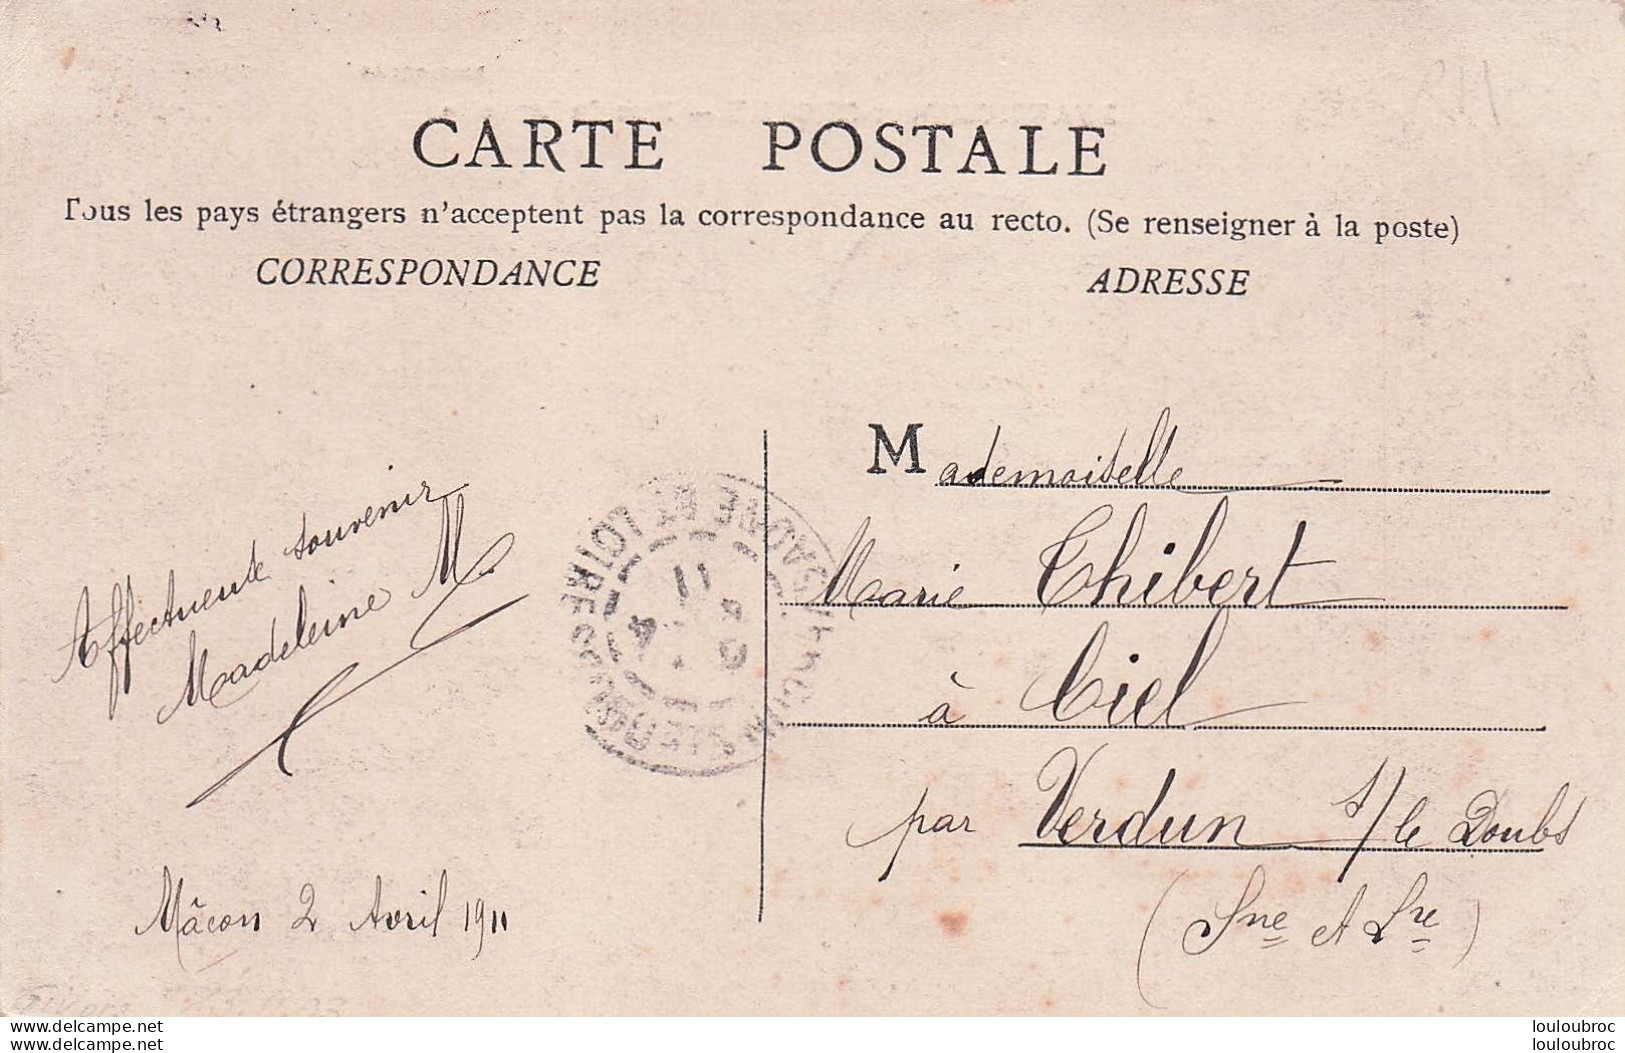 CARTE POSTALE
Tous les pays étrangers n'acceptent pas la correspondance au recto. (Se renseigner à la poste)
CORRESPONDANCE
ADRESSE
Affectueux souvenir
Madeleine M.
Mâcon 2 Avril 1911
Mademoiselle
Marie Thibert
à Ciel
par Verdun s/ le Doubs
(Sne et Lre)
SAONE ET LOIRE
delcampe.net
delcampe.net
louloubroc
louloubroc